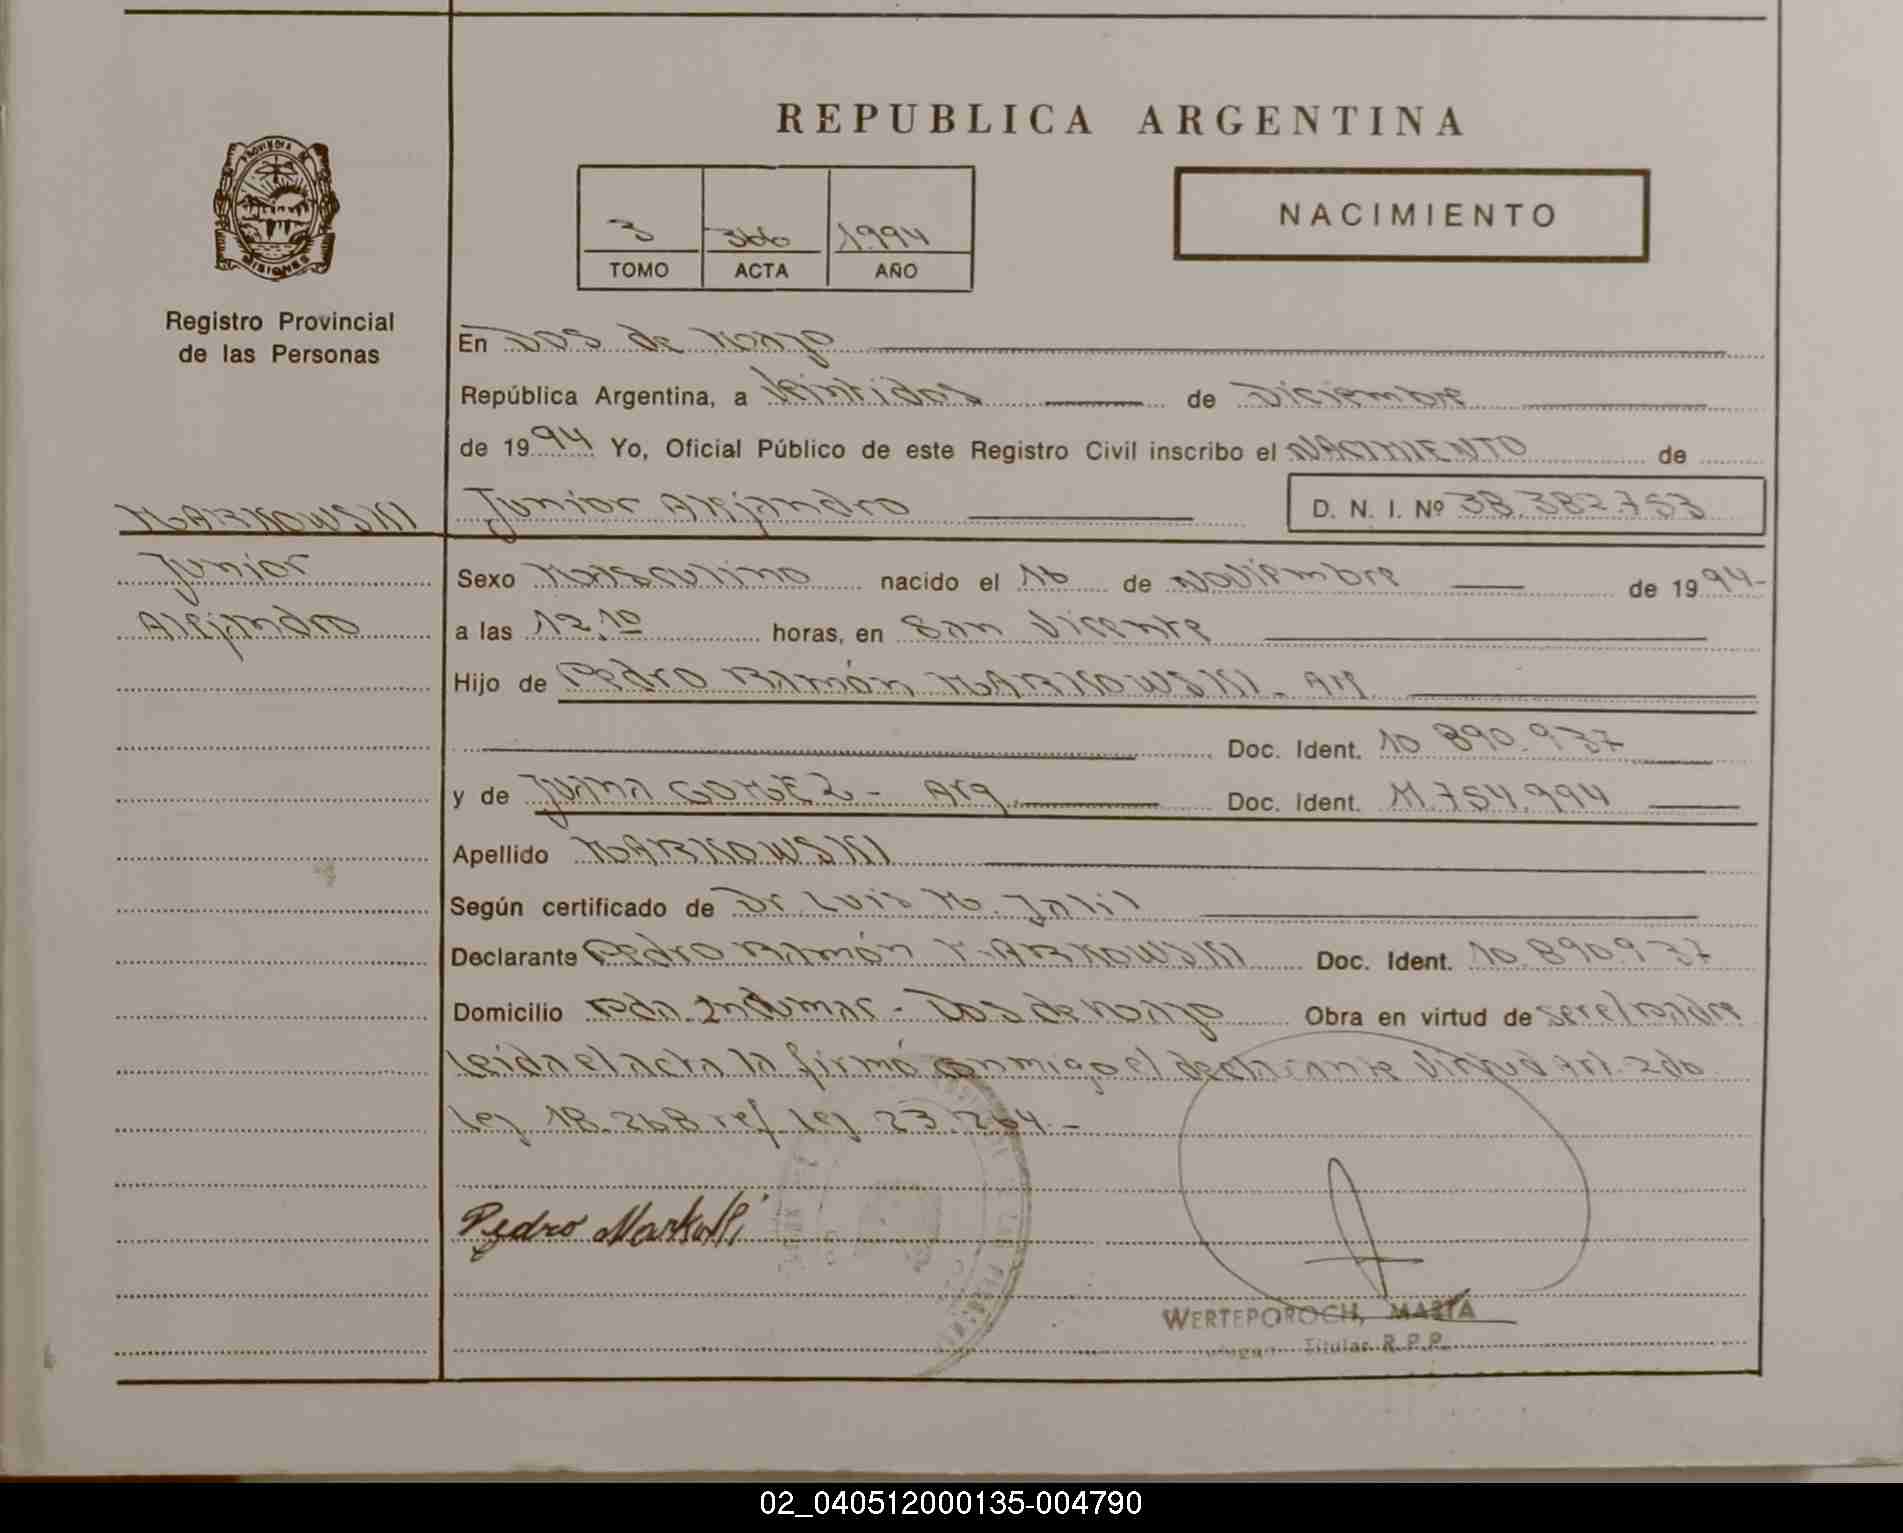 REPUBLICA ARGENTINA
PROVINCIA DE
MISIONES
Registro Provincial
de las Personas
3 366 1994
TOMO ACTA AÑO
NACIMIENTO
En Dos de Mayo
República Argentina, a Veintidos de Diciembre
de 1994 Yo, Oficial Público de este Registro Civil inscribo el NACIMIENTO de
MARKOWSKI Junior Alejandro D. N. I. Nº 38.382.753
Junior Sexo Masculino nacido el 16 de Noviembre de 1994-
Alejandro a las 12,10 horas, en San Vicente
Hijo de Pedro Ramón MARKOWSKI - Arg
Doc. Ident. 10.890.937
y de Juana GOMEZ - Arg. Doc. Ident. 11.754.994
Apellido MARKOWSKI
Según certificado de Dr. Luis M. Jalil
Declarante Pedro Ramón MARKOWSKI Doc. Ident. 10.890.937
Domicilio Pda. Indumar - Dos de Mayo Obra en virtud de ser el padre
Leida el acta la firmó conmigo el declarante virtud Art. 2do
ley 18.268 ref ley 23.264.-
Pedro
WERTEPOROCH, MARIA
Titular R.P.P.
02_040512000135-004790